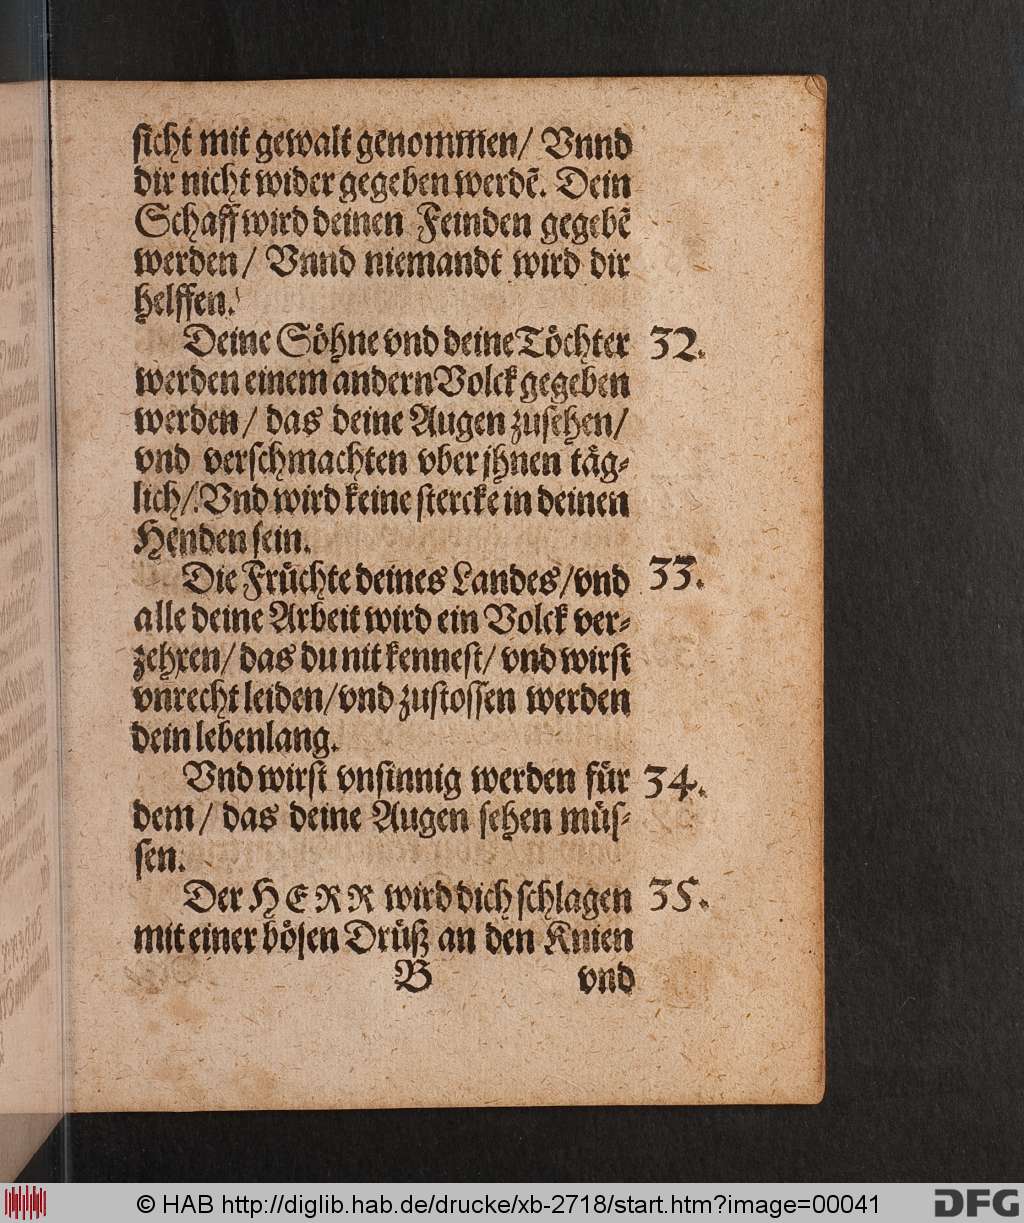 sicht mit gewalt genommen/ Vnnd
dir nicht wider gegeben werdē. Dein
Schaff wird deinen Feinden gegebē
werden/ Vnnd niemandt wird dir
helffen.
Deine Söhne vnd deine Töchter 32.
werden einem andern Volck gegeben
werden/ das deine Augen zusehen/
vnd verschmachten vber jhnen täg-
lich/ Vnd wird keine stercke in deinen
Henden sein.
Die Früchte deines Landes/ vnd 33.
alle deine Arbeit wird ein Volck ver-
zehren/ das du nit kennest/ vnd wirst
vnrecht leiden/ vnd zustossen werden
dein lebenlang.
Vnd wirst vnsinnig werden für 34.
dem/ das deine Augen sehen müs-
sen.
Der HERR wird dich schlagen 35.
mit einer bösen Drüß an den Knien
B vnd
© HAB http://diglib.hab.de/drucke/xb-2718/start.htm?image=00041
DFG